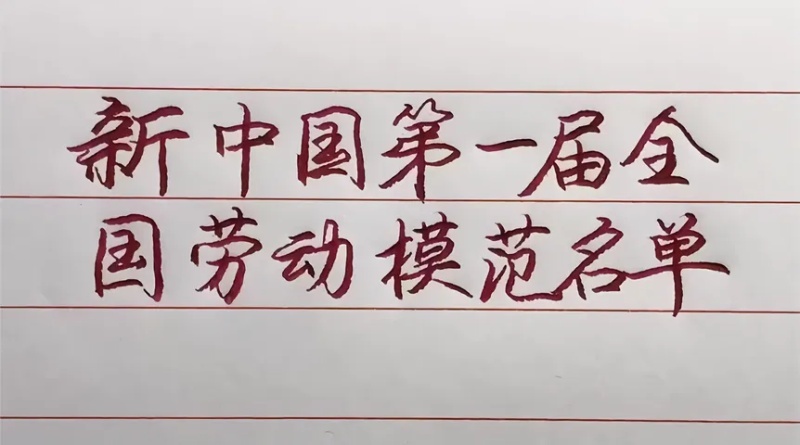 新中国第一届全
国劳动模范名单